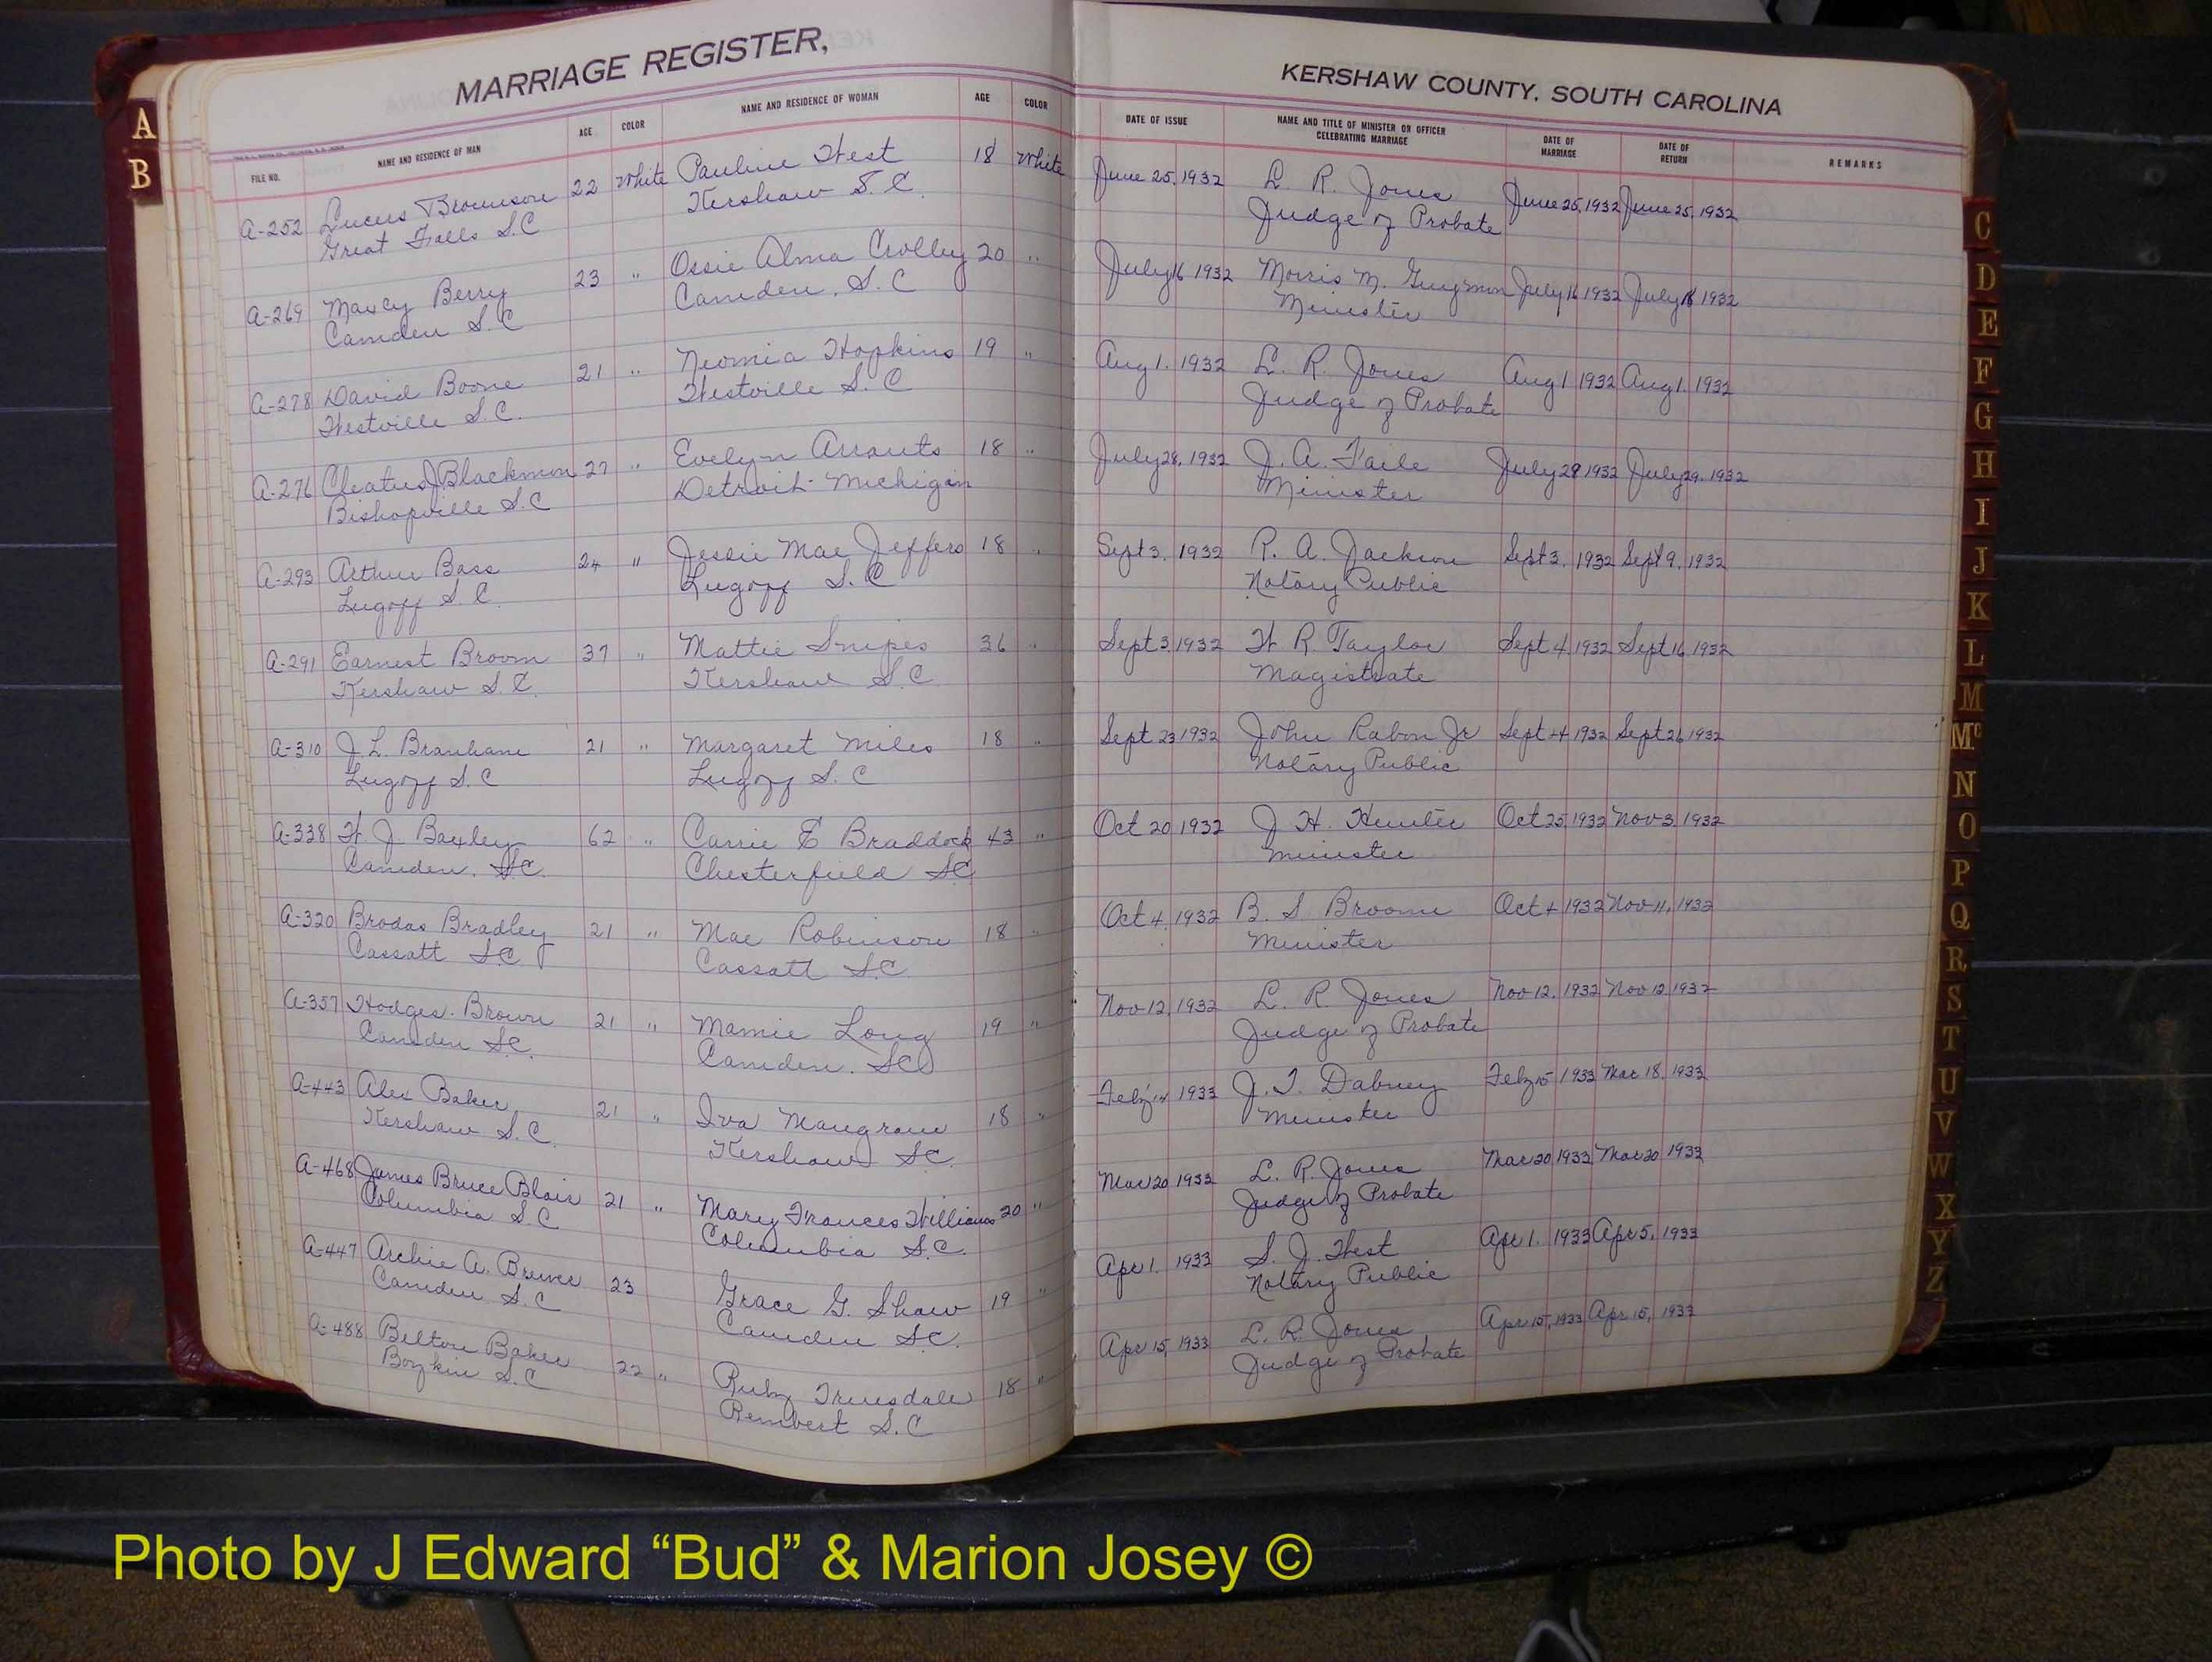 MARRIAGE REGISTER,
FILE NO. NAME AND RESIDENCE OF MAN AGE COLOR NAME AND RESIDENCE OF WOMAN AGE COLOR
A-252 Lucus Brownson 22 White Pauline West 18 White
Great Falls S.C Kershaw S.C.
A-269 Maxcy Berry 23 " Ossie Alma Crolley 20 "
Camden S.C Camden, S.C
A-278 David Boone 21 " Neomia Hopkins 19 "
Westville S.C. Westville S.C
A-276 Cleatus J Blackmon 27 " Evelyn Arrants 18 "
Bishopville S.C Detroit Michigan
A-293 Arthur Bass 24 " Jessie Mae Jeffers 18 "
Lugoff S.C. Lugoff S.C
A-291 Earnest Broom 37 " Mattie Snipes 36 "
Kershaw S.C. Kershaw S.C
A-310 J.L. Branham 21 " Margaret Miles 18 "
Lugoff S.C Lugoff S.C
A-338 W. J. Baxley 62 " Carrie E Braddock 43 "
Camden, S.C. Chesterfield SC
A-320 Brodas Bradley 21 " Mae Robinson 18 "
Cassatt S.C Cassatt S.C
A-357 Hodges Brown 21 " Mamie Long 19 "
Camden S.C. Camden. SC
A-443 Alex Baker 21 " Iva Mangrum 18 "
Kershaw S.C. Kershaw S.C.
A-468 James Bruce Blair 21 " Mary Frances Williams 20 "
Columbia S.C Columbia S.C.
A-447 Archie A. Brewer 23 Grace G. Shaw 19 "
Camden S.C Camden S.C.
A-488 Belton Baker 22 " Ruby Truesdale 18 "
Boykin S.C Rembert S.C
KERSHAW COUNTY. SOUTH CAROLINA
DATE OF ISSUE NAME AND TITLE OF MINISTER OR OFFICER CELEBRATING MARRIAGE DATE OF MARRIAGE DATE OF RETURN REMARKS
June 25, 1932 L. R. Jones June 25, 1932 June 25, 1932
Judge of Probate
July 16 1932 Morris M. Guymon July 16 1932 July 18 1932
Minister
Aug 1. 1932 L. R. Jones Aug 1 1932 Aug 1. 1932
Judge of Probate
July 28, 1932 J. A. Faile July 28 1932 July 29. 1932
Minister
Sept 3. 1932 R. A. Jackson Sept 3. 1932 Sept 9, 1932
Notary Public
Sept 3, 1932 W R Taylor Sept 4, 1932 Sept 16, 1932
Magistrate
Sept 23 1932 John Rabon Jr Sept 24 1932 Sept 26, 1932
Notary Public
Oct 20, 1932 J. H. Hunter Oct 25, 1932 Nov 3, 1932
Minister
Oct 4, 1932 B. S Broome Oct 4 1932 Nov 11, 1932
Minister
Nov 12, 1932 L. R Jones Nov 12. 1932 Nov 12 1932
Judge of Probate
Feby 14 1933 J. T. Dabney Feby 15 1933 Mar 18, 1933
Minister
Mar 20 1933 L. R. Jones Mar 20 1933 Mar 20 1933
Judge of Probate
Apr 1. 1933 S. J. West Apr 1. 1933 Apr 5, 1933
Notary Public
Apr 15, 1933 L. R. Jones Apr 15, 1933 Apr 15, 1933
Judge of Probate
A
B
C
D
E
F
G
H
I
J
K
L
M
Mc
N
O
P
Q
R
S
T
U
V
W
X
Y
Z
Photo by J Edward “Bud” & Marion Josey ©